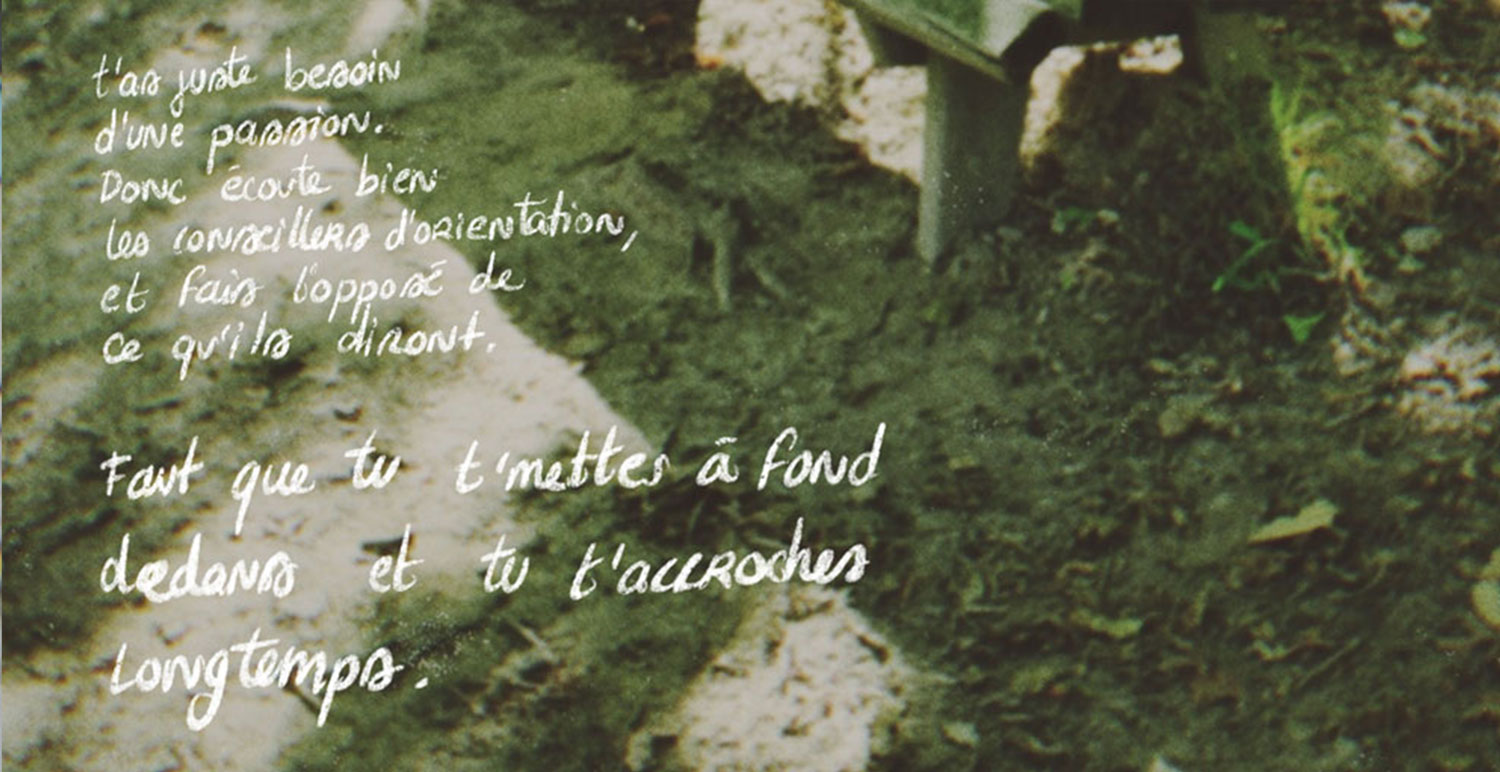 t'as juste besoin
d'une passion.
Donc écoute bien
les conseillers d'orientation,
et fais l'opposé de
ce qu'ils diront.
Faut que tu t'mettes à fond
dedans et tu t'accroches
Longtemps.